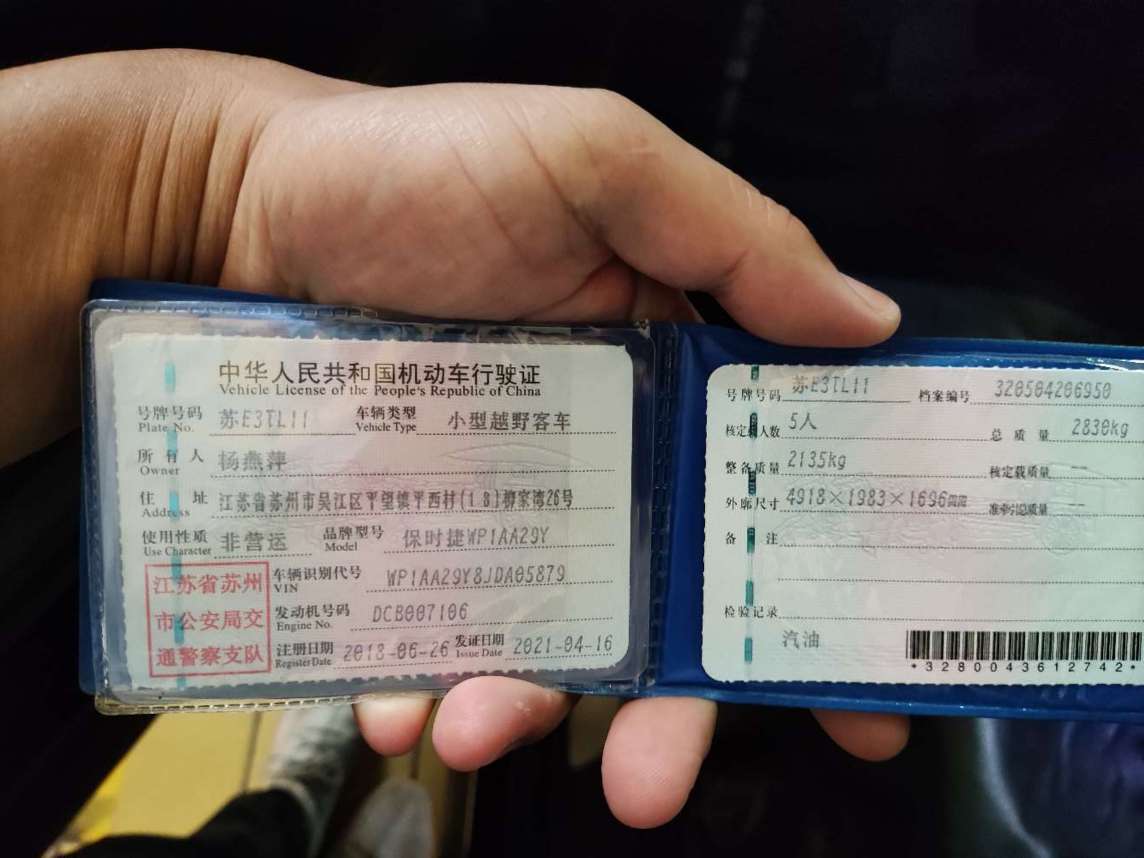 中华人民共和国机动车行驶证
Vehicle License of the People's Republic of China
号牌号码 Plate No. 苏E3TL11 车辆类型 Vehicle Type 小型越野客车
所有人 Owner 杨燕萍
住址 Address 江苏省苏州市吴江区平望镇平西村(18)柳家湾26号
使用性质 Use Character 非营运 品牌型号 Model 保时捷WP1AA29Y
江苏省苏州市公安局交通警察支队
车辆识别代号 VIN WP1AA29Y8JDA05879
发动机号码 Engine No. DCB007106
注册日期 Register Date 2018-06-26 发证日期 Issue Date 2021-04-16
号牌号码 苏E3TL11 档案编号 320504206950
核定载人数 5人 总质量 2830kg
整备质量 2135kg 核定载质量 --
外廓尺寸 4918×1983×1696㎜ 准牵引总质量 --
备注
检验记录
汽油
*3280043612742*